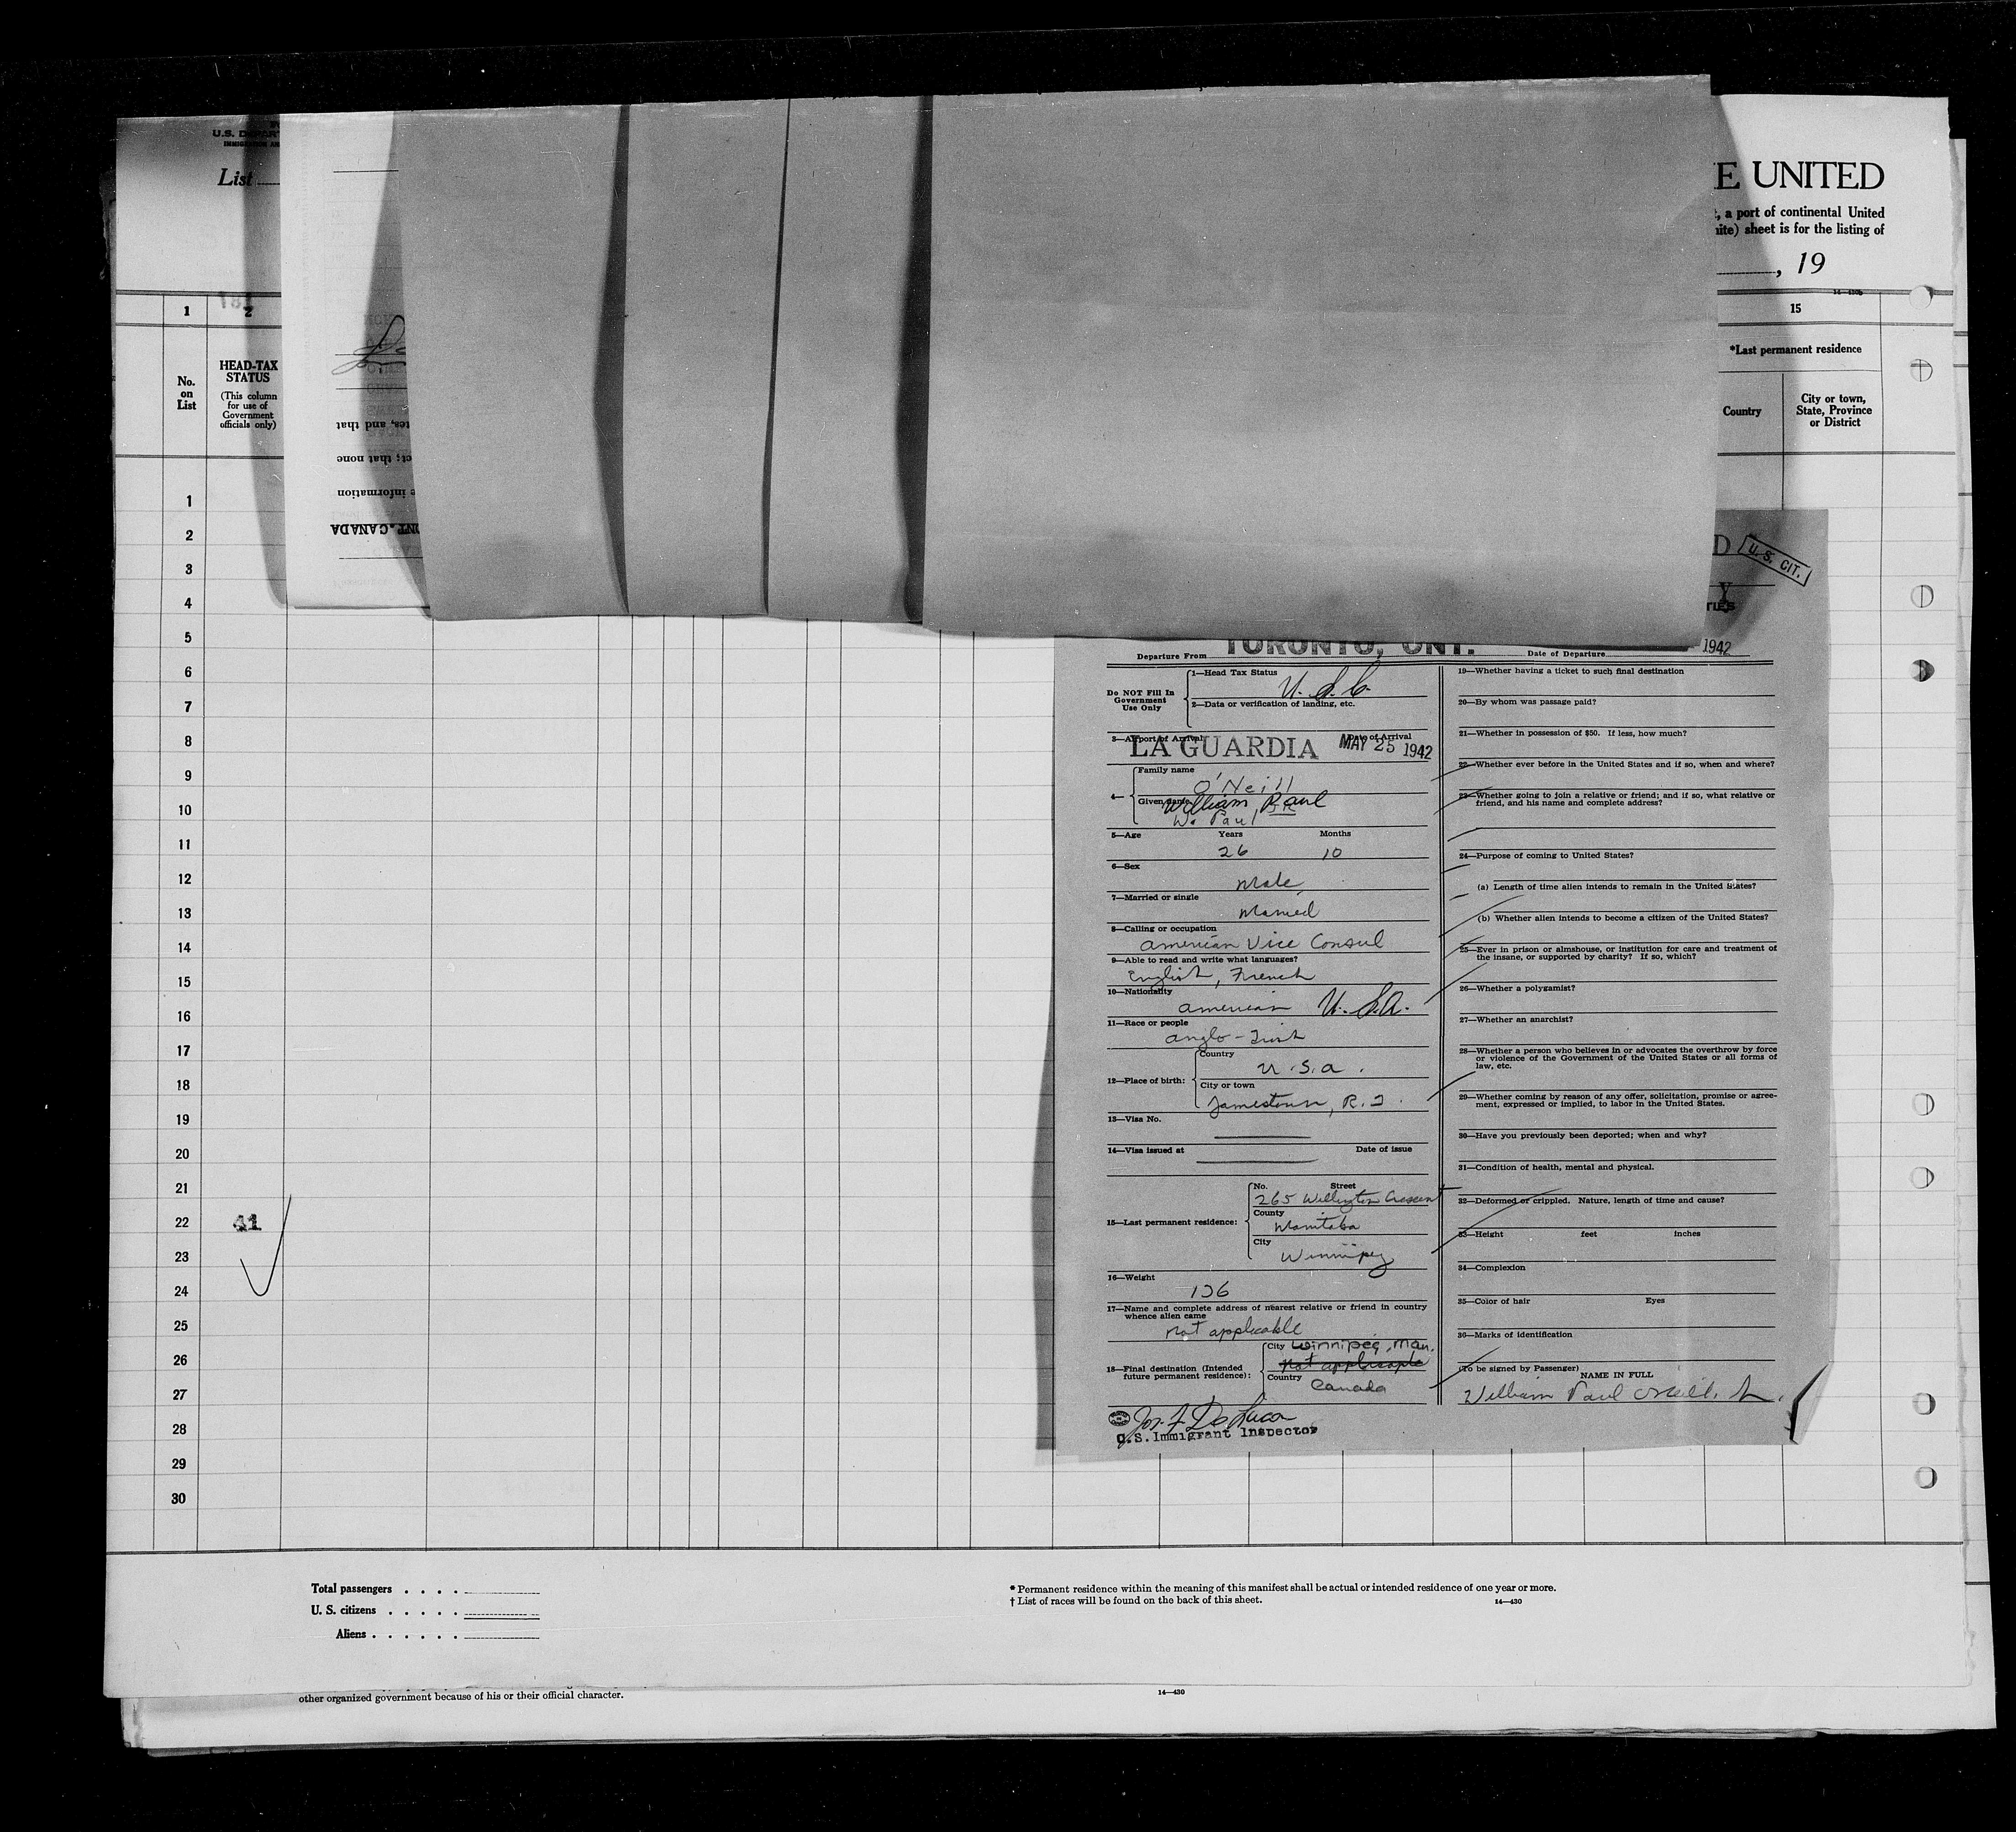 U.S.
List
E UNITED
, a port of continental United
ite) sheet is for the listing of
, 19
14—430b
1
2
15
No. on List
HEAD-TAX STATUS
(This column for use of Government officials only)
*Last permanent residence
Country
City or town, State, Province or District
tes, and that
ct; that none
e information
ONT. CANADA
D
U. S. CIT.
1
2
3
4
5
6
7
8
9
10
11
12
13
14
15
16
17
18
19
20
21
22
41
23
24
25
26
27
28
29
30
Departure From TORONTO, ONT. Date of Departure 1942
Do NOT Fill In Government Use Only
1—Head Tax Status
U.S.C.
2—Data or verification of landing, etc.
3—Airport of Arrival Date of Arrival
LA GUARDIA MAY 25 1942
4—
Family name
O'Neill
Given name
William Paul
W. Paul
5—Age Years Months
26 10
6—Sex
Male
7—Married or single
Married
8—Calling or occupation
American Vice Consul
9—Able to read and write what languages?
English, French
10—Nationality
American U.S.A.
11—Race or people
Anglo-Irish
12—Place of birth:
Country
U.S.A.
City or town
Jamestown, R.I.
13—Visa No.
14—Visa issued at Date of issue
15—Last permanent residence:
No. Street
265 Wellington Crescent
County
Manitoba
City
Winnipeg
16—Weight
136
17—Name and complete address of nearest relative or friend in country
whence alien came
not applicable
18—Final destination (Intended future permanent residence):
City Winnipeg, Man.
not applicable
Country
Canada
U.S. Immigrant Inspector
19—Whether having a ticket to such final destination
20—By whom was passage paid?
21—Whether in possession of $50. If less, how much?
22—Whether ever before in the United States and if so, when and where?
23—Whether going to join a relative or friend; and if so, what relative or
friend, and his name and complete address?
24—Purpose of coming to United States?
(a) Length of time alien intends to remain in the United States?
(b) Whether alien intends to become a citizen of the United States?
25—Ever in prison or almshouse, or institution for care and treatment of
the insane, or supported by charity? If so, which?
26—Whether a polygamist?
27—Whether an anarchist?
28—Whether a person who believes in or advocates the overthrow by force
or violence of the Government of the United States or all forms of
law, etc.
29—Whether coming by reason of any offer, solicitation, promise or agree-
ment, expressed or implied, to labor in the United States.
30—Have you previously been deported; when and why?
31—Condition of health, mental and physical.
32—Deformed or crippled. Nature, length of time and cause?
33—Height feet inches
34—Complexion
35—Color of hair Eyes
36—Marks of identification
(To be signed by Passenger)
NAME IN FULL
William Paul O'Neill, Jr.
Total passengers . . . .
U. S. citizens . . . . .
Aliens . . . . . .
* Permanent residence within the meaning of this manifest shall be actual or intended residence of one year or more.
† List of races will be found on the back of this sheet.
14—430
other organized government because of his or their official character.
14—430